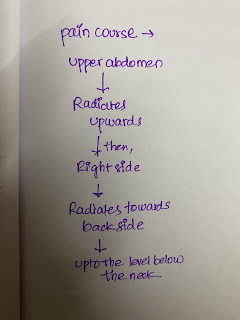 pain course →
upper abdomen
↓
Radiates
upwards
↓ then,
Right side
↓
Radiates towards
back side
↓
upto the level below
the neck